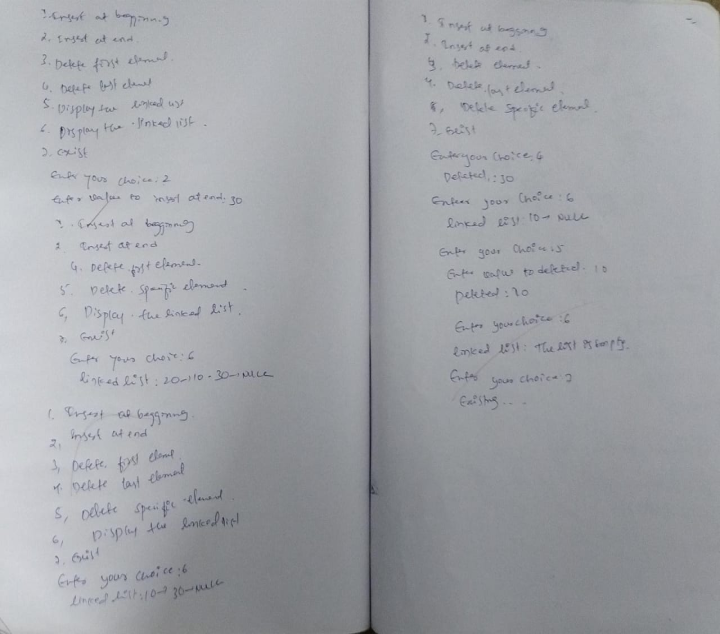 1. Insert at beggining
2. Insert at end.
3. Delete first element.
4. Delete last element
5. Display the linked list
6. Display the linked list.
7. exist
Enter your choice: 2
Enter value to insert at end: 30
1. Insert at beggining
2. Insert at end
4. Delete first element.
5. Delete specific element.
6, Display the linked list.
7. Exist
Enter your choice: 6
linked list: 20→10→30→NULL
1. Insert at beggining.
2, Insert at end
3, Delete first elemet.
4. Delete last element
5, Delete specific element.
6, Display the linked list
7. Exist
Enter your choice: 6
linked list: 10→30→NULL
1. Insert at beggining
2. Insert at end
3. Delete element.
4. Delete last element.
5, Delete specific element.
7. Exist
Enter your choice: 4
Deleted: 30
Enter your choice: 6
linked list: 10→NULL
Enter your choice: 5
Enter value to deleted. 10
Deleted: 10
Enter your choice: 6
linked list: The list is Empty.
Enter your choice 7
Existing...